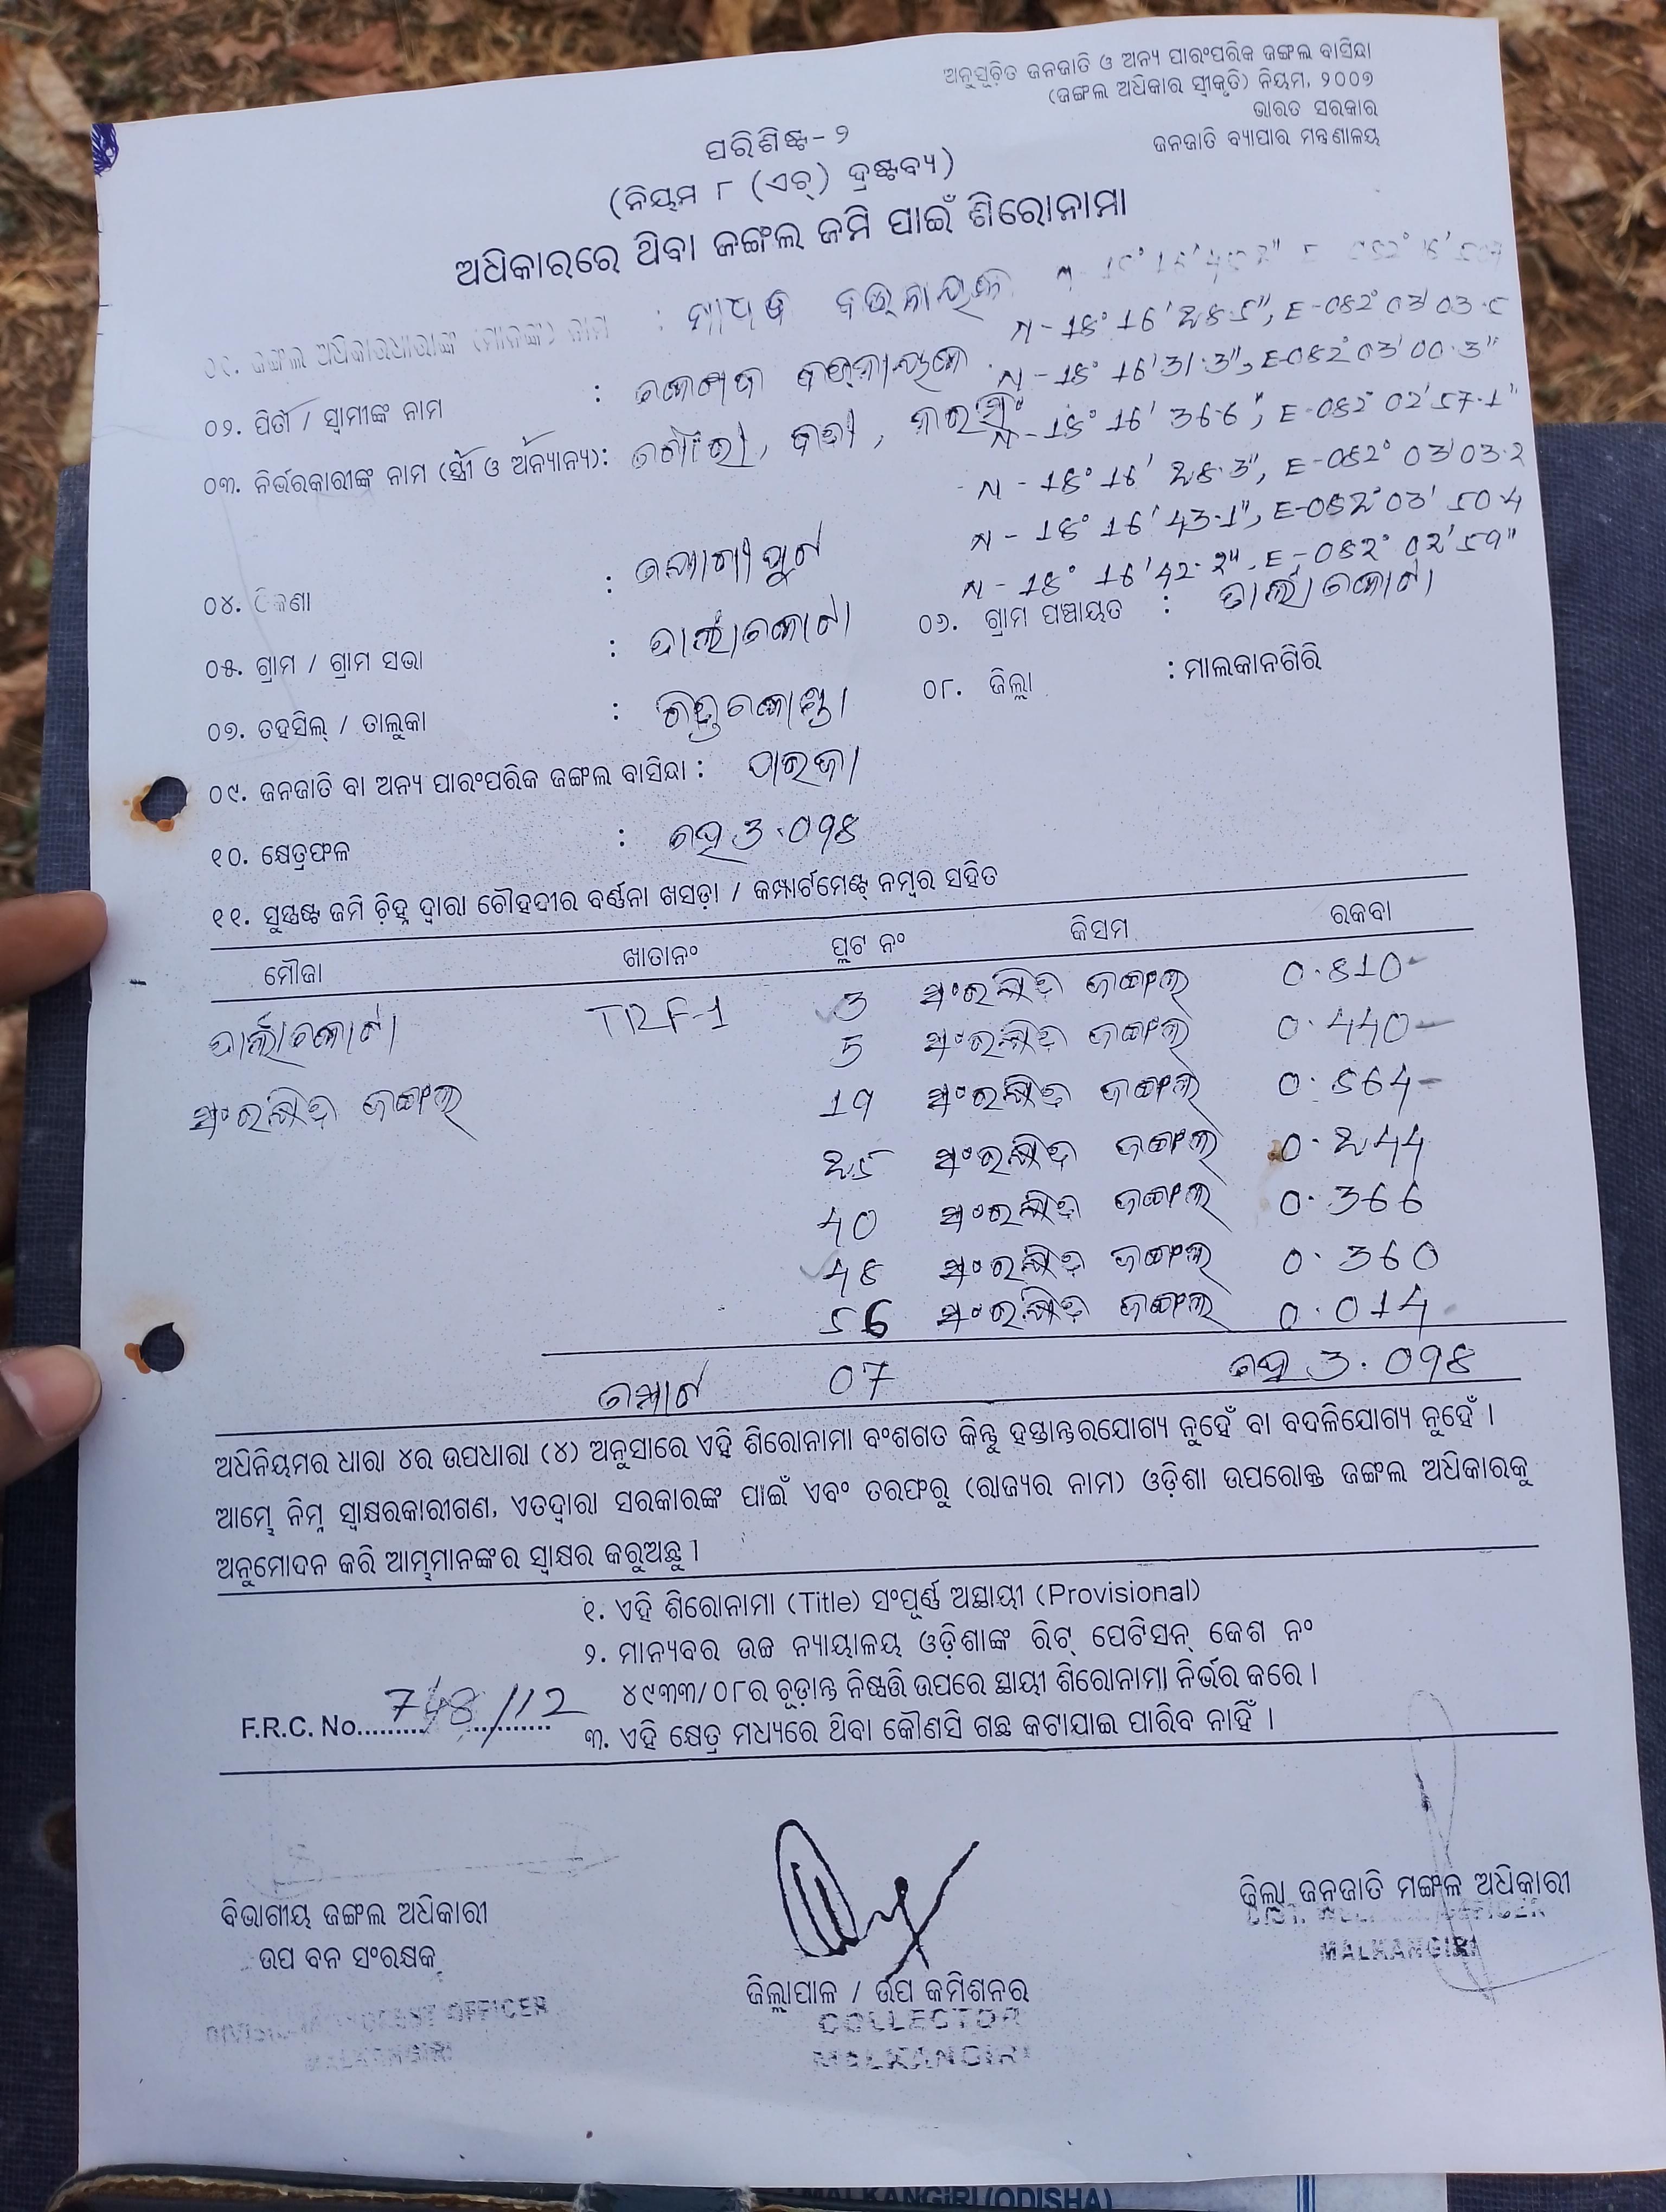 ଅନୁସୂଚିତ ଜନଜାତି ଓ ଅନ୍ୟ ପାରଂପରିକ ଜଙ୍ଗଲ ବାସିନ୍ଦା
(ଜଙ୍ଗଲ ଅଧିକାର ସ୍ୱୀକୃତି) ନିୟମ, ୨୦୦୭
ଭାରତ ସରକାର
ଜନଜାତି ବ୍ୟାପାର ମନ୍ତ୍ରଣାଳୟ
ପରିଶିଷ୍ଟ-୨
(ନିୟମ ୮ (ଏଚ୍) ଦ୍ରଷ୍ଟବ୍ୟ)
ଅଧିକାରରେ ଥିବା ଜଙ୍ଗଲ ଜମି ପାଇଁ ଶିରୋନାମା
୦୧. ଜଙ୍ଗଲ ଅଧିକାରଧାରୀଙ୍କ (ମାନଙ୍କ) ନାମ : ମାଧବ
N-18° 16' 28.5", E-082° 03' 03.
୦୨. ପିତା / ସ୍ୱାମୀଙ୍କ ନାମ :
N-18° 16' 31.3", E-082° 03' 00.3"
୦୩. ନିର୍ଭରକାରୀଙ୍କ ନାମ (ସ୍ତ୍ରୀ ଓ ଅନ୍ୟାନ୍ୟ):
N-18° 16' 36.6", E-082° 02' 57.1"
N-18° 16' 28.3", E-082° 03' 03.2
N-18° 16' 43.1", E-082° 03' 50.4
N-18° 16' 42.2", E-082° 02' 59"
୦୪. ଠିକଣା :
୦୫. ଗ୍ରାମ / ଗ୍ରାମ ସଭା : ୦୬. ଗ୍ରାମ ପଞ୍ଚାୟତ :
୦୭. ତହସିଲ୍ / ତାଲୁକା : ୦୮. ଜିଲ୍ଲା : ମାଲକାନଗିରି
୦୯. ଜନଜାତି ବା ଅନ୍ୟ ପାରଂପରିକ ଜଙ୍ଗଲ ବାସିନ୍ଦା : ପରଜା
୧୦. କ୍ଷେତ୍ରଫଳ : ହେ 3.098
୧୧. ସୁସ୍ପଷ୍ଟ ଜମି ଚିହ୍ନ ଦ୍ୱାରା ଚୌହଦୀର ବର୍ଣ୍ଣନା ଖସଡ଼ା / କମ୍ପାର୍ଟମେଣ୍ଟ୍ ନମ୍ବର ସହିତ
ମୌଜା ଖାତାନଂ ପ୍ଲଟ ନଂ କିସମ ରକବା
TRF-1 3 ସଂରକ୍ଷିତ ଜଙ୍ଗଲ 0.810
5 ସଂରକ୍ଷିତ ଜଙ୍ଗଲ 0.440
ସଂରକ୍ଷିତ ଜଙ୍ଗଲ 19 ସଂରକ୍ଷିତ ଜଙ୍ଗଲ 0.864
25 ସଂରକ୍ଷିତ ଜଙ୍ଗଲ 0.244
40 ସଂରକ୍ଷିତ ଜଙ୍ଗଲ 0.366
48 ସଂରକ୍ଷିତ ଜଙ୍ଗଲ 0.360
56 ସଂରକ୍ଷିତ ଜଙ୍ଗଲ 0.014
ମୋଟ 07 ହେ 3.098
ଅଧିନିୟମର ଧାରା ୪ର ଉପଧାରା (୪) ଅନୁସାରେ ଏହି ଶିରୋନାମା ବଂଶଗତ କିନ୍ତୁ ହସ୍ତାନ୍ତରଯୋଗ୍ୟ ନୁହେଁ ବା ବଦଳିଯୋଗ୍ୟ ନୁହେଁ ।
ଆମ୍ଭେ ନିମ୍ନ ସ୍ୱାକ୍ଷରକାରୀଗଣ, ଏତଦ୍ୱାରା ସରକାରଙ୍କ ପାଇଁ ଏବଂ ତରଫରୁ (ରାଜ୍ୟର ନାମ) ଓଡ଼ିଶା ଉପରୋକ୍ତ ଜଙ୍ଗଲ ଅଧିକାରକୁ
ଅନୁମୋଦନ କରି ଆମ୍ଭମାନଙ୍କର ସ୍ୱାକ୍ଷର କରୁଅଛୁ ।
୧. ଏହି ଶିରୋନାମା (Title) ସଂପୂର୍ଣ୍ଣ ଅସ୍ଥାୟୀ (Provisional)
୨. ମାନ୍ୟବର ଉଚ୍ଚ ନ୍ୟାୟାଳୟ ଓଡ଼ିଶାଙ୍କ ରିଟ୍ ପେଟିସନ୍ କେଶ ନଂ
୪୯୩୩/୦୮ର ଚୂଡ଼ାନ୍ତ ନିଷ୍ପତ୍ତି ଉପରେ ସ୍ଥାୟୀ ଶିରୋନାମା ନିର୍ଭର କରେ ।
F.R.C. No. 748/12
୩. ଏହି କ୍ଷେତ୍ର ମଧ୍ୟରେ ଥିବା କୌଣସି ଗଛ କଟାଯାଇ ପାରିବ ନାହିଁ ।
ବିଭାଗୀୟ ଜଙ୍ଗଲ ଅଧିକାରୀ
ଉପ ବନ ସଂରକ୍ଷକ
ଜିଲ୍ଲାପାଳ / ଉପ କମିଶନର
COLLECTOR
MALKANGIRI
ଜିଲ୍ଲା ଜନଜାତି ମଙ୍ଗଳ ଅଧିକାରୀ
MALKANGIRI
MALKANGIRI (ODISHA)